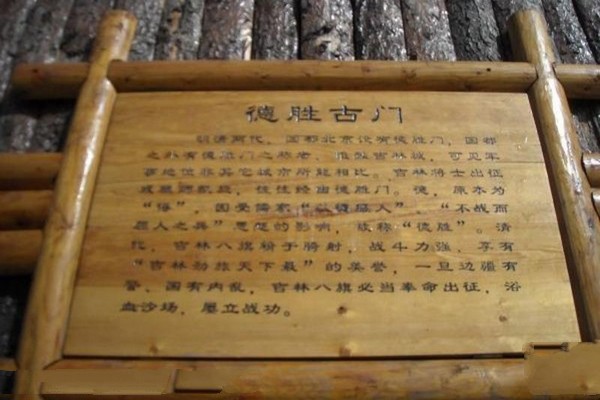 德胜古门
明清两代，国都北京设有德胜门，国都
之外有德胜门之称者，唯独吉林城，可见军
事地位非其它城市所能相比。吉林将士出征
或班师凯旋，往往经由德胜门。德，原本为
“得”，因受儒家“以德服人”、“不战而
屈人之兵”思想的影响，故称“德胜”。清
代，吉林八旗精于骑射，战斗力强，享有
“吉林劲旅天下最”的美誉，一旦边疆有
警，国有内乱，吉林八旗必当奉命出征，浴
血沙场，屡立战功。